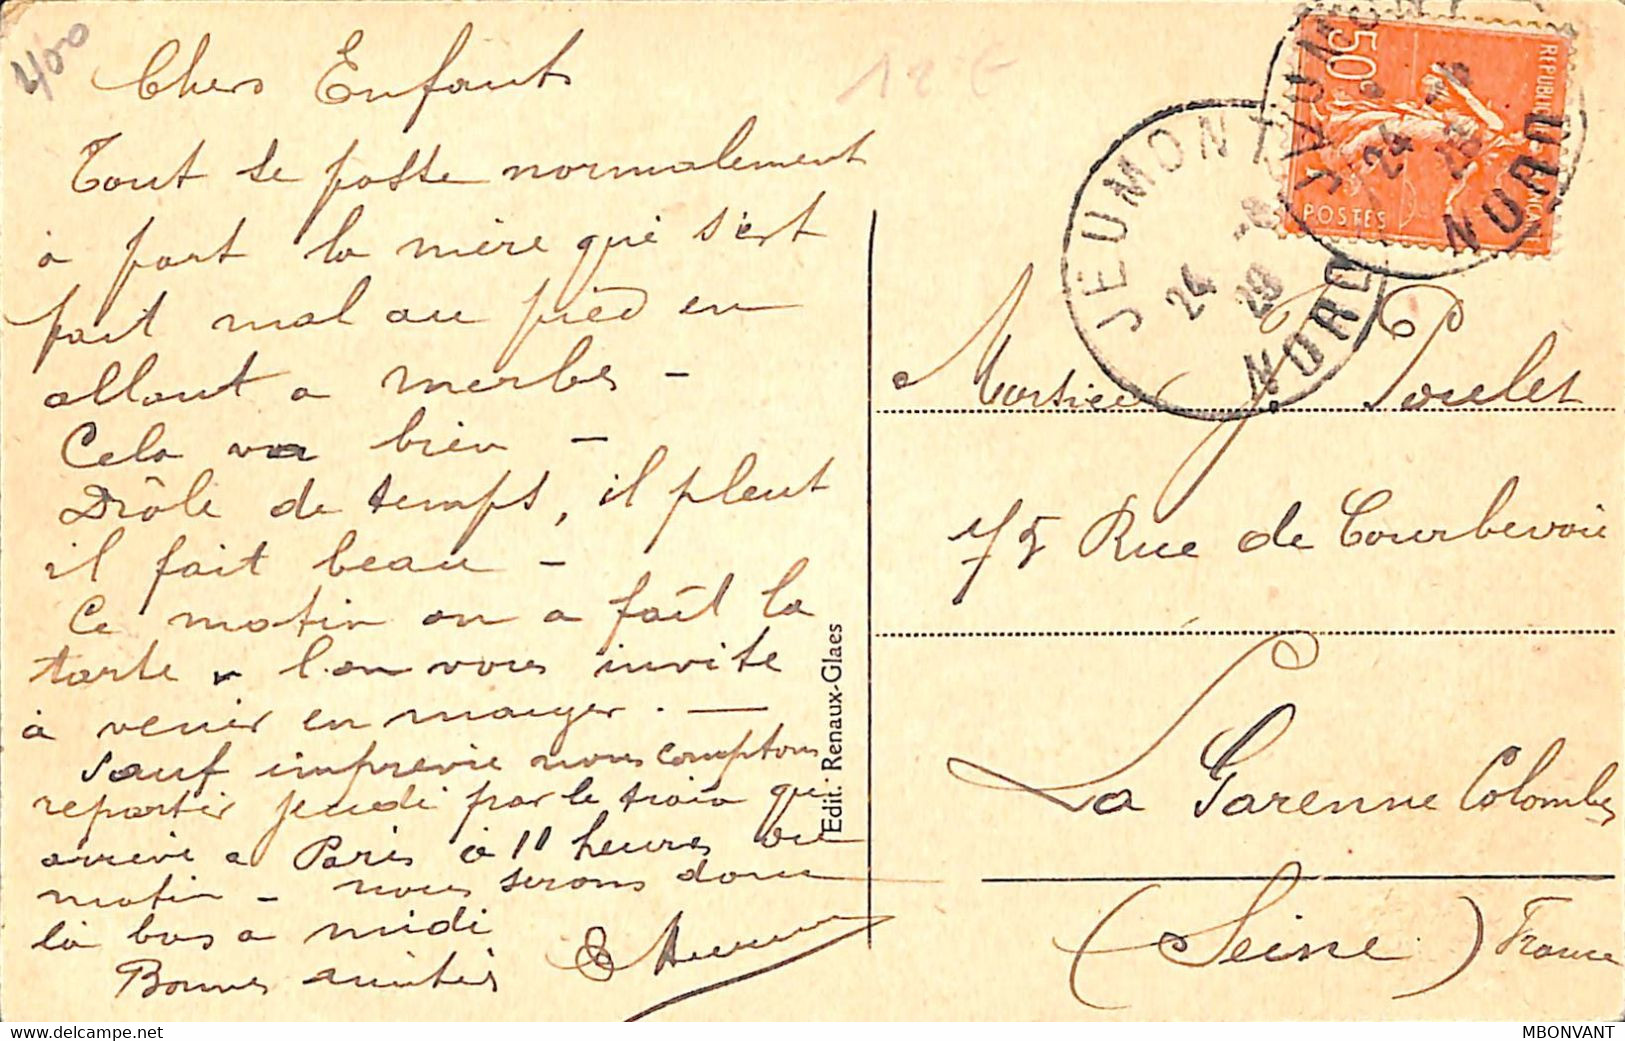 400
12 €
Chers Enfants
Tout se passe normalement
à part la mère qui s'est
fait mal au pied en
allant a merbes -
Cela va bien -
Drôle de temps, il pleut
il fait beau -
Ce matin on a fait la
tarte - l'on vous invite
à venir en manger. -
Sauf imprevu nous comptons
repartir jeudi par le train qui
arrive a Paris à 11 heures du
matin - nous serons donc
là bas a midi
Bonnes amitiés
Edit. Renaux-Glaes
JEUMONT
24 -
29
NORD
JEUMONT
24 -
29
NORD
50c
REPUBLIQUE FRANÇAISE
POSTES
Monsieur J. Poulet
75 Rue de Courbevoie
La Garenne Colombes
(Seine) France
delcampe.net
MBONVANT